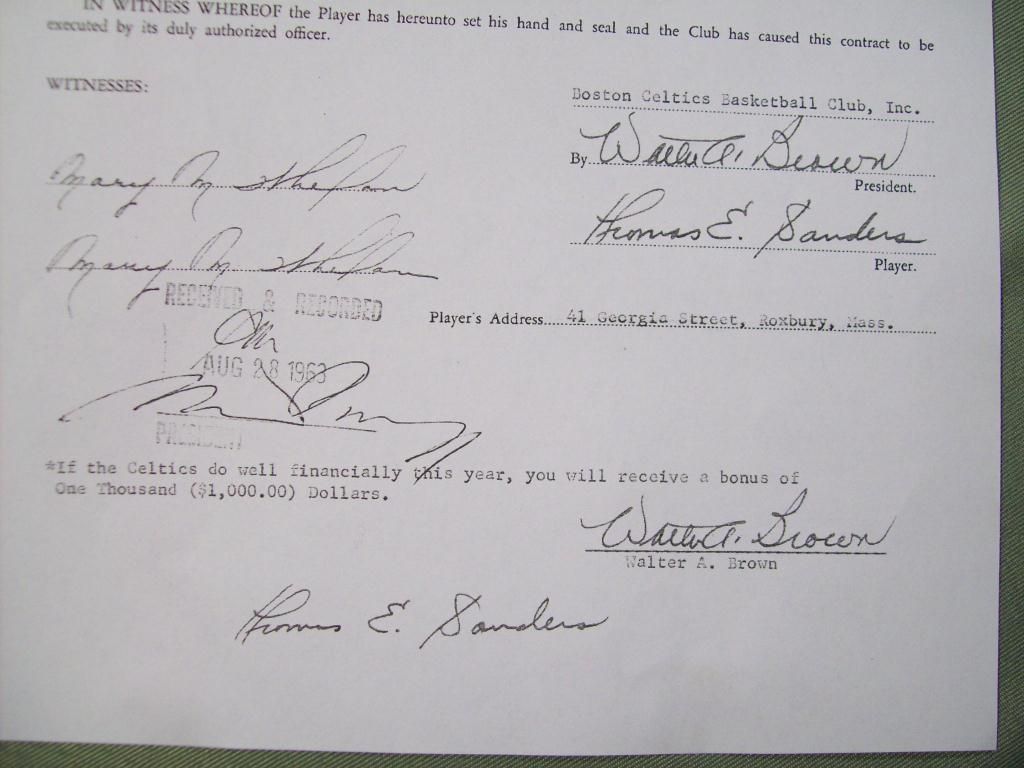 IN WITNESS WHEREOF the Player has hereunto set his hand and seal and the Club has caused this contract to be
executed by its duly authorized officer.
WITNESSES:
Boston Celtics Basketball Club, Inc.
By Walter A. Brown
President.
Mary M
Thomas E. Sanders
Player.
Mary M
RECEIVED & RECORDED
Player's Address 41 Georgia Street, Roxbury, Mass.
AUG 28 1963
PRESIDENT
*If the Celtics do well financially this year, you will receive a bonus of
One Thousand ($1,000.00) Dollars.
Walter A. Brown
Walter A. Brown
Thomas E. Sanders